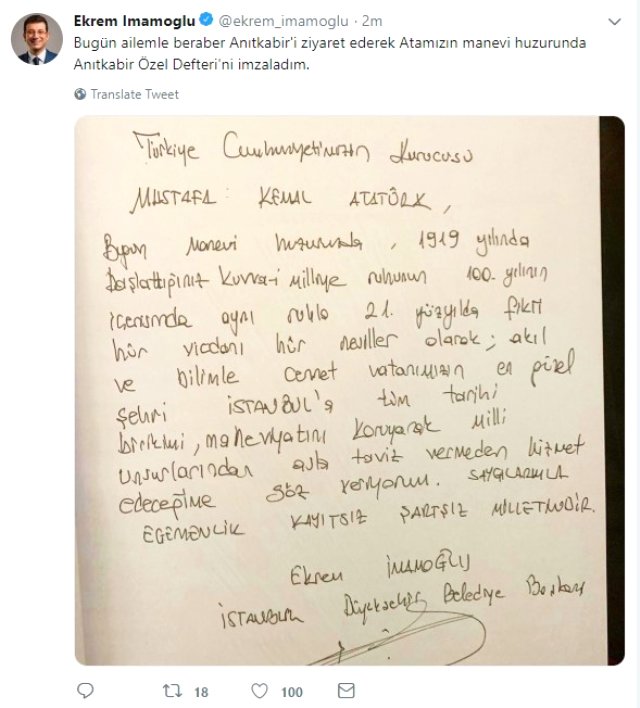 Ekrem Imamoglu @ekrem_imamoglu · 2m
Bugün ailemle beraber Anıtkabir'i ziyaret ederek Atamızın manevi huzurunda
Anıtkabir Özel Defteri'ni imzaladım.
Translate Tweet
Türkiye Cumhuriyeti'mizin Kurucusu
MUSTAFA KEMAL ATATÜRK,
Bugün Manevi huzurunuzda, 1919 yılında
Başlattığınız Kuvva-i Milliye ruhunun 100. yılının
içerisinde aynı ruhla 21. yüzyılda fikri
hür vicdanı hür nesiller olarak; akıl
ve bilimle cennet vatanımızın en güzel
şehri İSTANBUL'a tüm tarihi
birikimi, maneviyatını koruyarak Milli
unsurlarından asla taviz vermeden hizmet
edeceğime söz veriyorum. SAYGILARIMLA
EGEMENLİK KAYITSIZ ŞARTSIZ MİLLETİNDİR.
Ekrem İMAMOĞLU
İSTANBUL Büyükşehir Belediye Başkanı
18 100